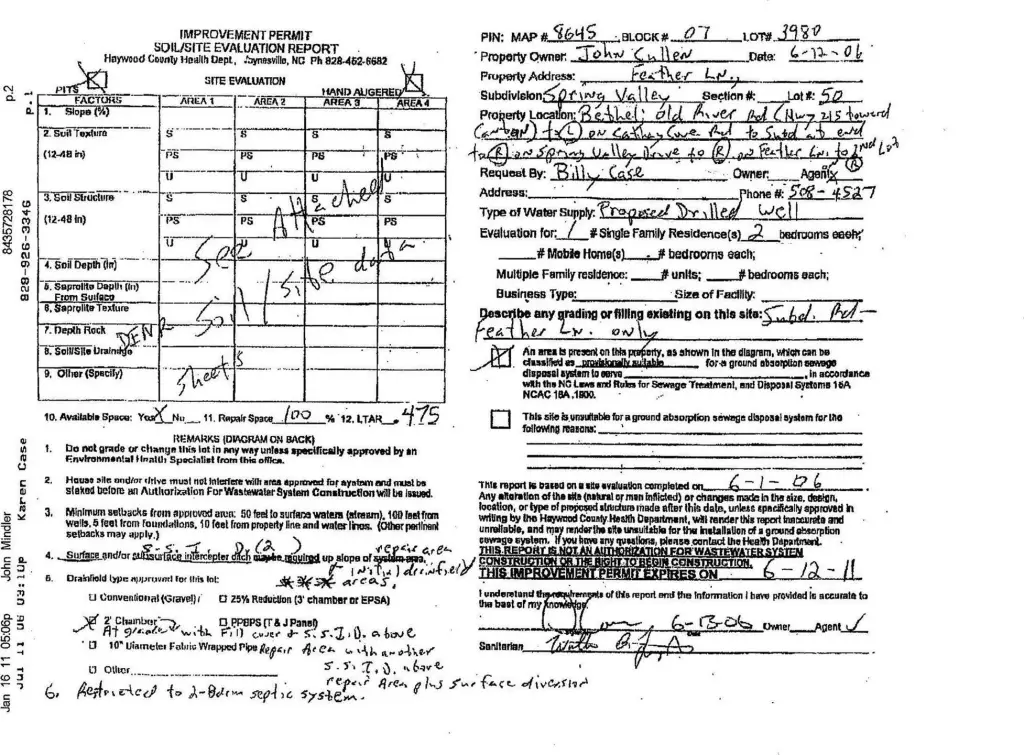 IMPROVEMENT PERMIT
SOIL/SITE EVALUATION REPORT
Haywood County Health Dept., Waynesville, NC Ph 828-452-6682
SITE EVALUATION
PITS HAND AUGERED
FACTORS AREA 1 AREA 2 AREA 3 AREA 4
1. Slope (%)
2. Soil Texture S S S S
(12-48 in) PS PS PS PS
U U U U
3. Soil Structure S S S S
(12-48 in) PS PS PS PS
U U U
4. Soil Depth (in)
5. Saprolite Depth (in)
From Surface
6. Saprolite Texture
7. Depth Rock
8. Soil/Site Drainage
9. Other (Specify)
See Attached
DENR Soil/site data
Sheets
10. Available Space: Yes X No 11. Repair Space 100 % 12. LTAR .475
REMARKS (DIAGRAM ON BACK)
1. Do not grade or change this lot in any way unless specifically approved by an
Environmental Health Specialist from this office.
2. House site and/or drive must not interfere with area approved for system and must be
staked before an Authorization For Wastewater System Construction will be issued.
3. Minimum setbacks from approved area: 50 feet to surface waters (stream), 100 feet from
wells, 5 feet from foundations, 10 feet from property line and water lines. (Other pertinent
setbacks may apply.)
S.S.I.D. (2) repair area
4. Surface and/or subsurface interceptor ditch may be required up slope of system area.
initial drainfield
areas.
5. Drainfield type approved for this lot:
Conventional (Gravel) 25% Reduction (3' chamber or EPSA)
2' Chamber PPBPS (T & J Panel)
At grade with Fill cover & S.S.I.D. above
10" Diameter Fabric Wrapped Pipe Repair Area with another
S.S.I.D. above
Other
repair Area plus surface diversion
6. Restricted to 2-Bdrm septic system.
PIN: MAP # 8645 BLOCK # 07 LOT# 3980
Property Owner: John Cullen Date: 6-12-06
Property Address: Feather Ln.,
Subdivision: Spring Valley Section #: Lot #: 50
Property Location: Bethel: Old River Rd (Hwy 215 toward
Canton) to (L) on Cathey Cove Rd to Subd at end
to (R) on Spring Valley Drive to (R) on Feather Ln. to 2nd Lot
(R)
Request By: Billy Case Owner: Agent: X
Address: Phone #: 508-4527
Type of Water Supply: Proposed Drilled Well
Evaluation for: 1 # Single Family Residence(s) 2 bedrooms each;
# Mobile Home(s) # bedrooms each;
Multiple Family residence: # units; # bedrooms each;
Business Type: Size of Facility:
Describe any grading or filling existing on this site: Subd. Rd-
Feather Ln. only
An area is present on this property, as shown in the diagram, which can be
classified as provisionally suitable for a ground absorption sewage
disposal system to serve , in accordance
with the NC Laws and Rules for Sewage Treatment, and Disposal Systems 15A
NCAC 18A .1900.
This site is unsuitable for a ground absorption sewage disposal system for the
following reasons:
This report is based on a site evaluation completed on 6-1-06
Any alteration of the site (natural or man inflicted) or changes made in the size, design,
location, or type of proposed structure made after this date, unless specifically approved in
writing by the Haywood County Health Department, will render this report inaccurate and
unreliable, and may render the site unsuitable for the installation of a ground absorption
sewage system. If you have any questions, please contact the Health Department.
THIS REPORT IS NOT AN AUTHORIZATION FOR WASTEWATER SYSTEM
CONSTRUCTION OR THE RIGHT TO BEGIN CONSTRUCTION.
THIS IMPROVEMENT PERMIT EXPIRES ON 6-12-11
I understand the requirements of this report and the information I have provided is accurate to
the best of my knowledge.
6-13-06 Owner Agent ✓
Sanitarian
Jan 16 11 05:06p John Mindler 8435728178 p.2
Jul 11 06 03:10p Karen Case 828-926-3346 p.1